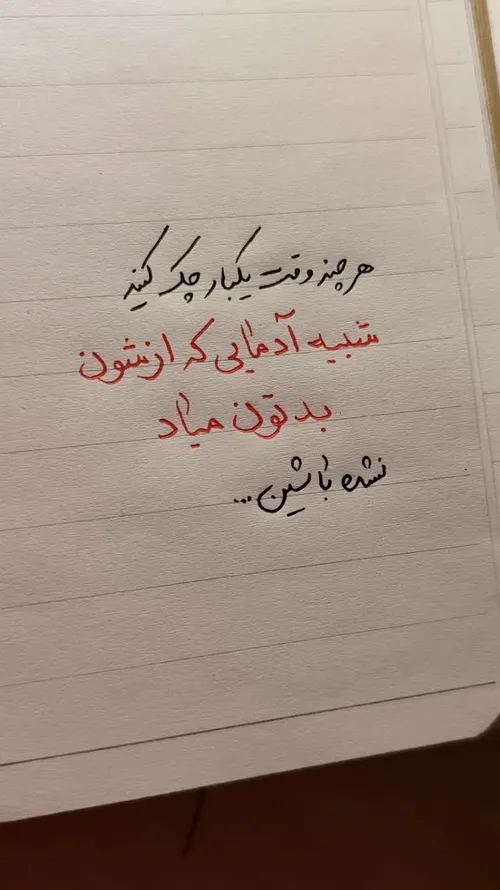 هر چند وقت یکبار چک کنید
شبیه آدمایی که ازشون
بدتون میاد
نشده باشین...